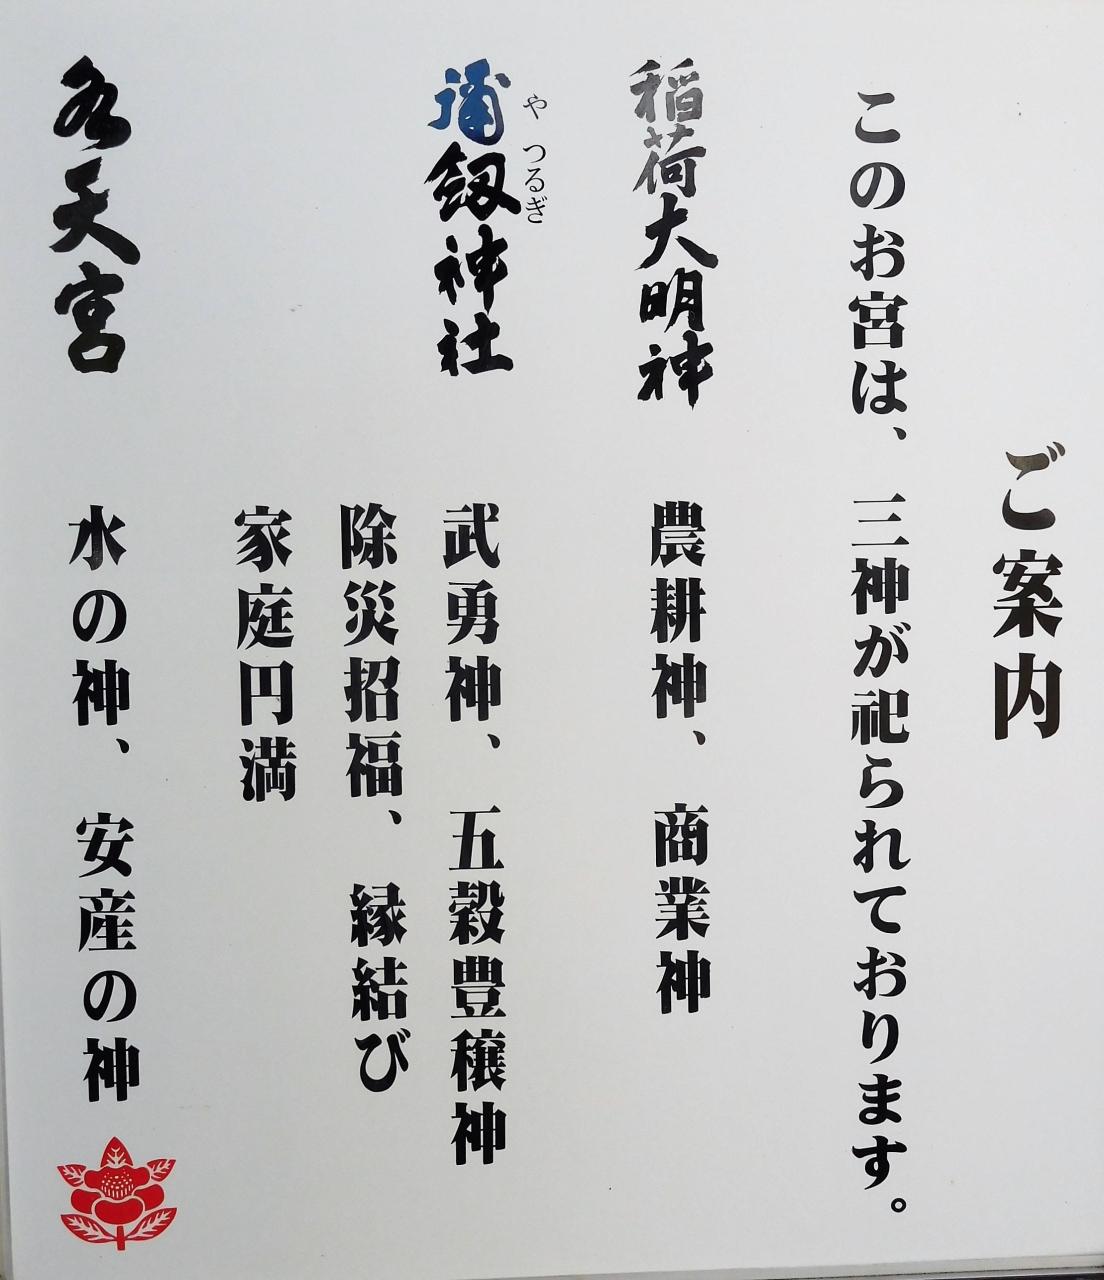 ご案内
このお宮は、三神が祀られております。
稲荷大明神 農耕神、商業神
やつるぎ
彌劔神社 武勇神、五穀豊穣神
除災招福、縁結び
家庭円満
水天宮 水の神、安産の神